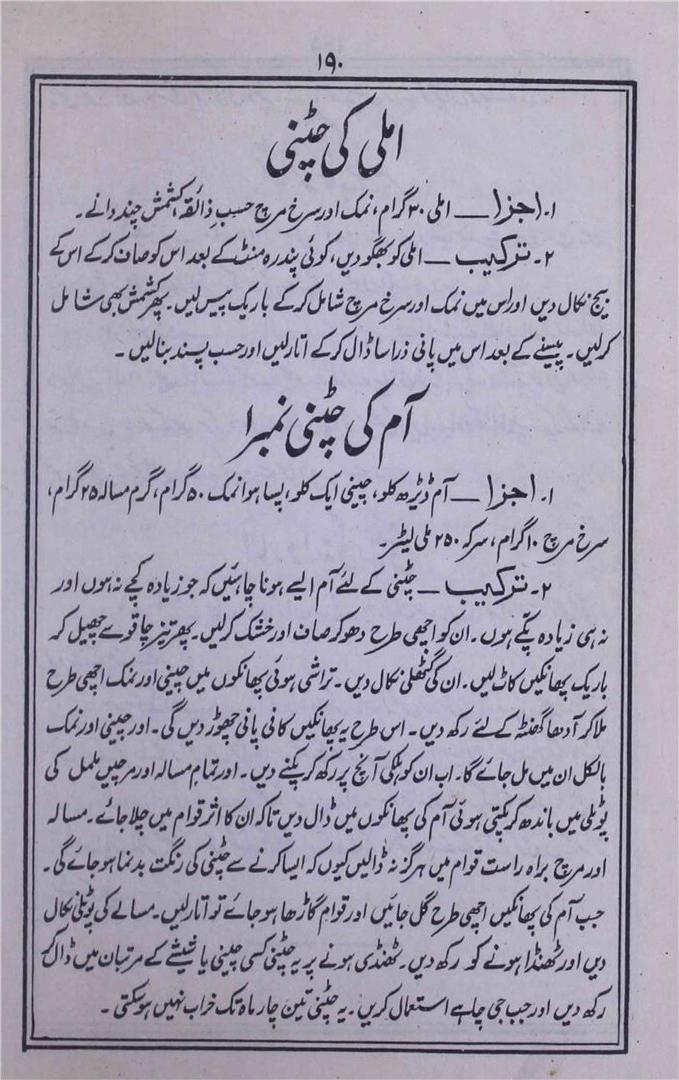 ۱۹۰
املی کی چٹنی
۱۔ اجزا — املی ۳۰ گرام، نمک اور سرخ مرچ حسب ذائقہ، کشمش چند دانے۔
۲۔ ترکیب — املی کو بھگو دیں، کوئی پندرہ منٹ کے بعد اس کو صاف کر کے اس کے
بیج نکال دیں اور اس میں نمک اور سرخ مرچ شامل کر کے باریک پیس لیں۔ پھر کشمش بھی شامل
کرلیں۔ پیسنے کے بعد اس میں پانی ذرا سا ڈال کر کے اتار لیں اور حسب پسند بنالیں۔
آم کی چٹنی نمبر ۱
۱۔ اجزا — آم ڈیڑھ کلو، چینی ایک کلو، پسا ہوا نمک ۵۰ گرام، گرم مسالہ ۲۵ گرام،
سرخ مرچ ۱۰ گرام، سرکہ ۲۵۰ ملی لیٹر۔
۲۔ ترکیب — چٹنی کے لئے آم ایسے ہونا چاہئیں کہ جو زیادہ کچے نہ ہوں اور
نہ ہی زیادہ پکے ہوں۔ ان کو اچھی طرح دھو کر صاف اور خشک کرلیں۔ پھر تیز چاقو سے چھیل کر
باریک پھانکیں کاٹ لیں۔ ان کی گٹھلی نکال دیں۔ تراشی ہوئی پھانکوں میں چینی اور نمک اچھی طرح
ملا کر آدھا گھنٹہ کے لئے رکھ دیں۔ اس طرح یہ پھانکیں کافی پانی چھوڑ دیں گی۔ اور چینی اور نمک
بالکل ان میں مل جائے گا۔ اب ان کو ہلکی آنچ پر رکھ کر پکنے دیں۔ اور تمام مسالہ اور مرچیں ململ کی
پوٹلی میں باندھ کر پکتی ہوئی آم کی پھانکوں میں ڈال دیں تاکہ ان کا اثر قوام میں چلا جائے۔ مسالہ
اور مرچ براہ راست قوام میں ہرگز نہ ڈالیں کیوں کہ ایسا کرنے سے چٹنی کی رنگت بدنما ہو جائے گی۔
جب آم کی پھانکیں اچھی طرح گل جائیں اور قوام گاڑھا ہو جائے تو اتار لیں۔ مسالے کی پوٹلی نکال
دیں اور ٹھنڈا ہونے کو رکھ دیں۔ ٹھنڈی ہونے پر یہ چٹنی کسی چینی یا شیشے کے مرتبان میں ڈال کر
رکھ دیں اور جب جی چاہے استعمال کریں۔ یہ چٹنی تین چار ماہ تک خراب نہیں ہوسکتی۔